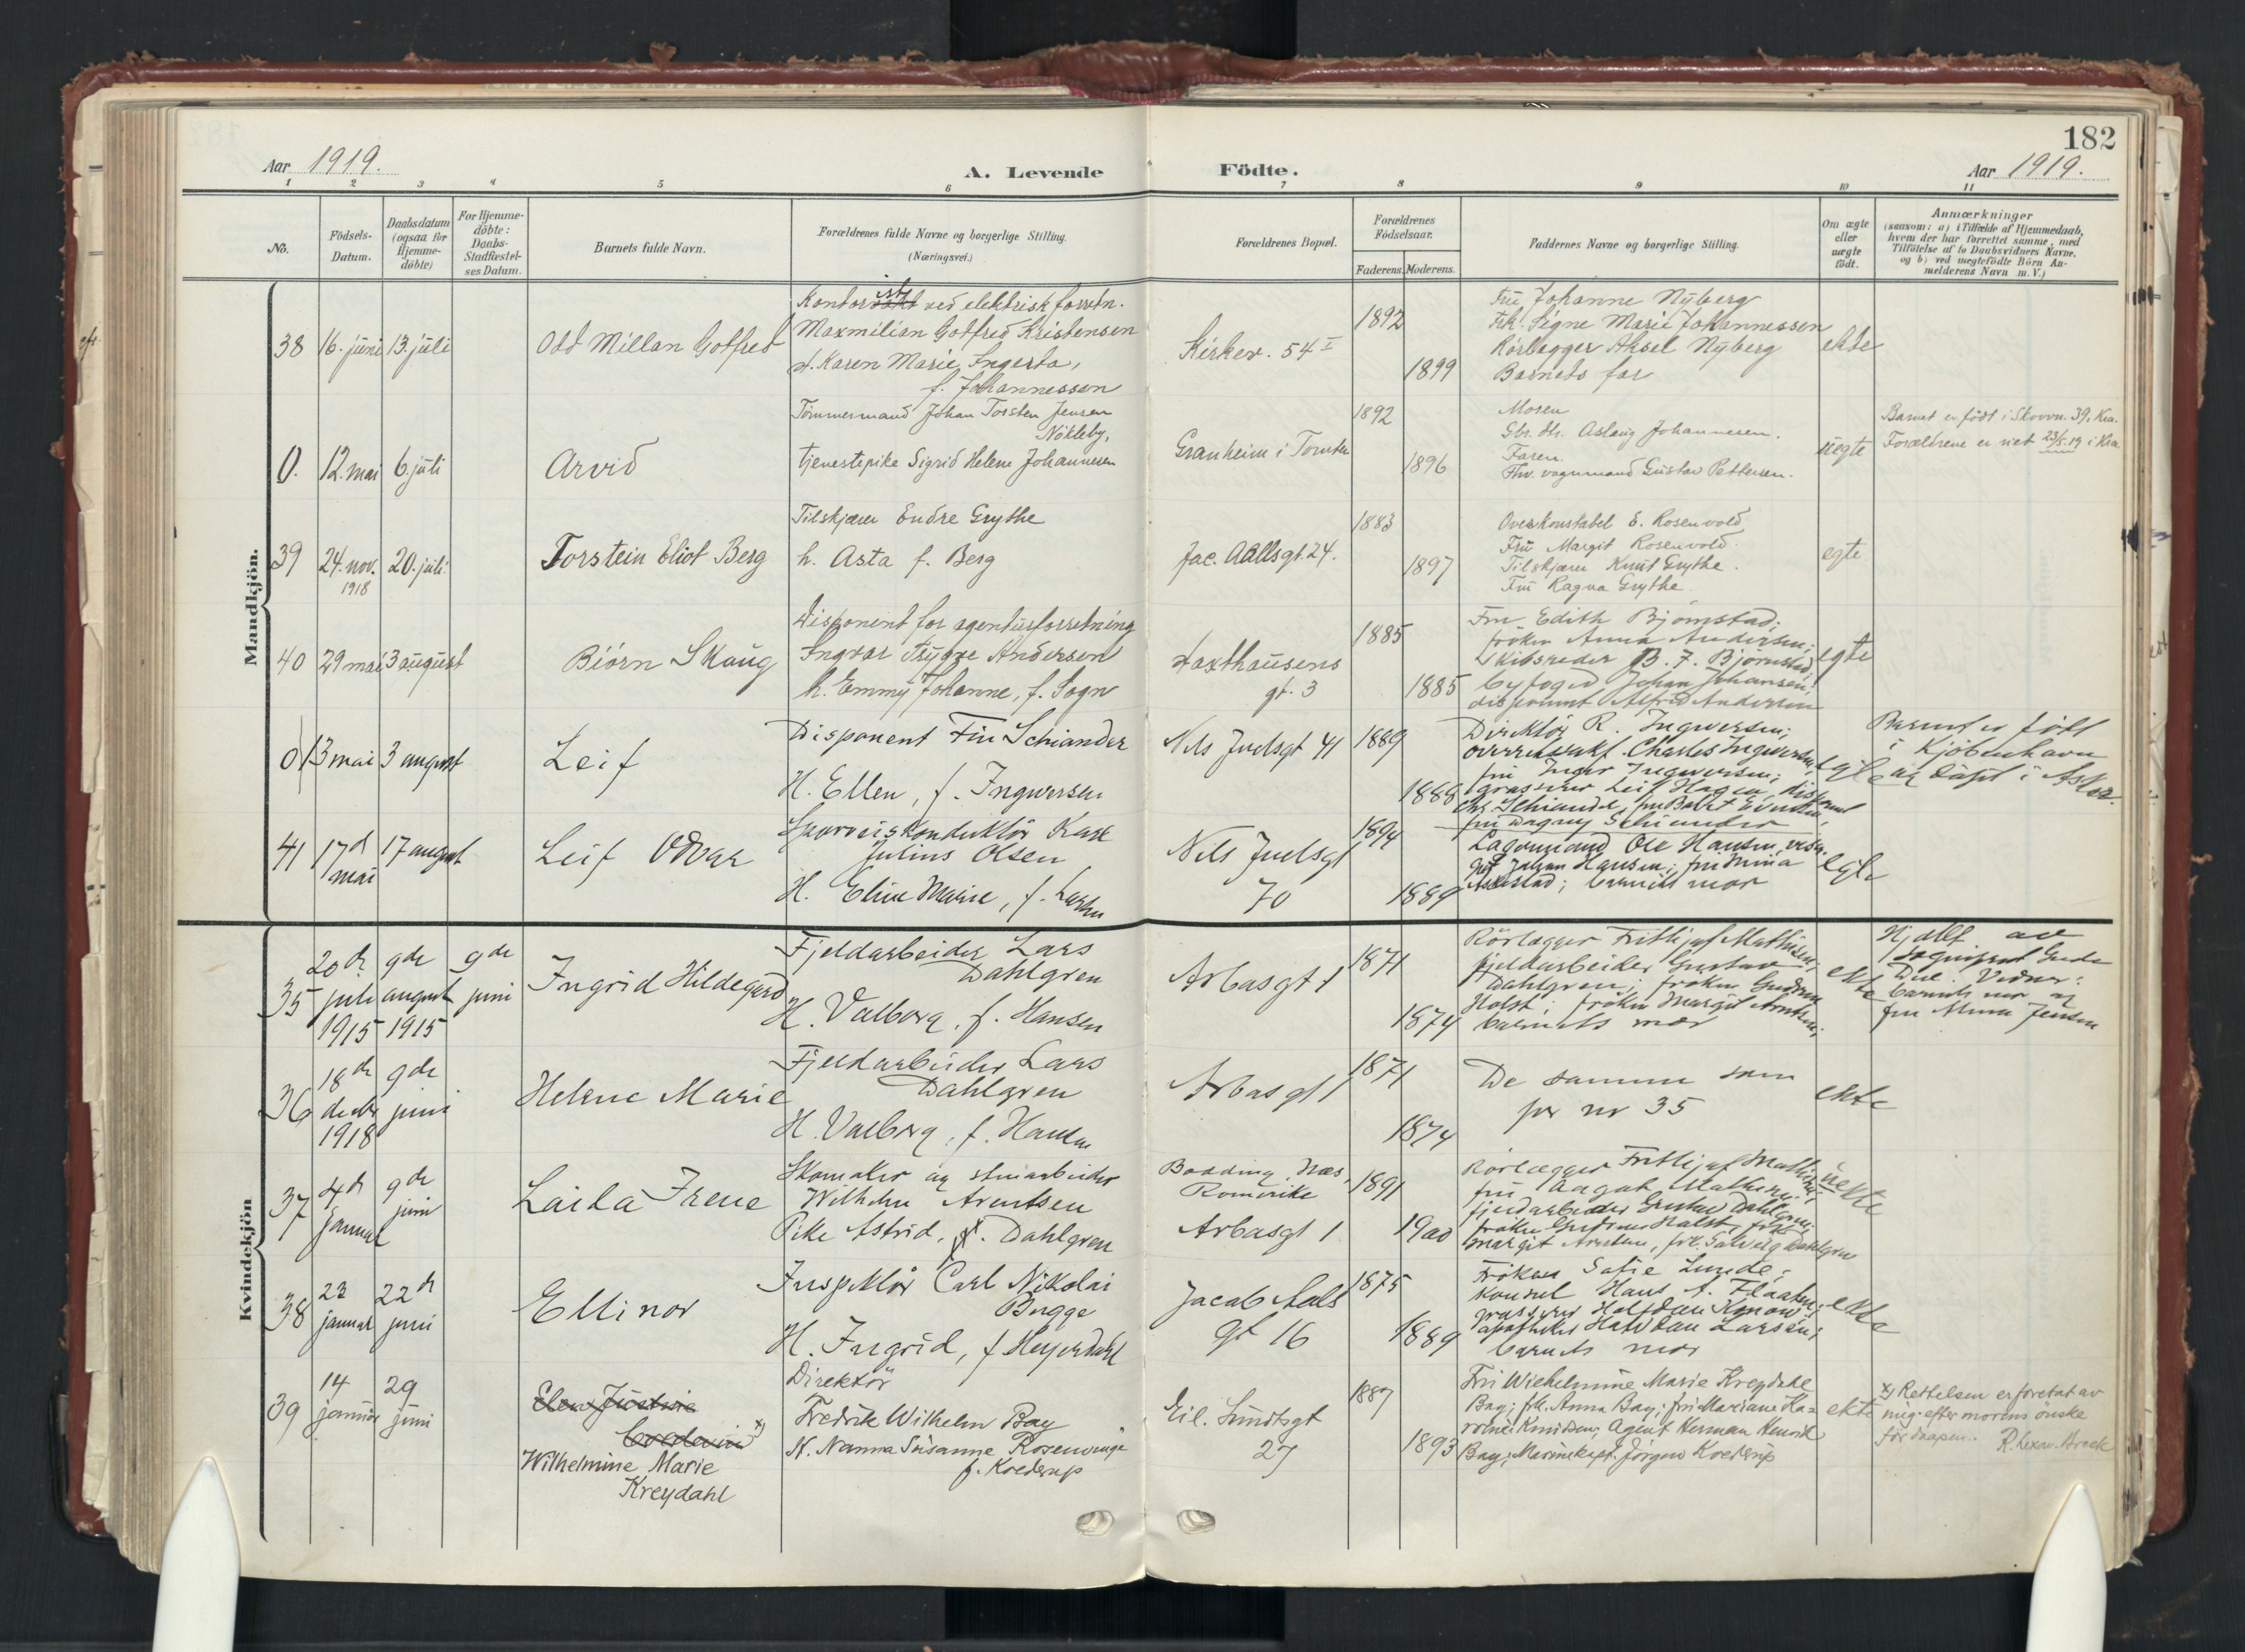 182
Aar 1919.
A. Levende Födte.
Aar 1919.
1 2 3 4 5 6 7 8 9 10 11
No.
Födsels-
Datum.
Daabsdatum
(ogsaa for
Hjemme-
döbte)
For Hjemme-
döbte:
Daabs-
Stadfæstel-
ses Datum.
Barnets fulde Navn.
Forældrenes fulde Navne og borgerlige Stilling.
(Næringsvei.)
Forældrenes Bopæl.
Forældrenes
Födselsaar.
Faderens. Moderens.
Faddernes Navne og borgerlige Stilling.
Om ægte
eller
uægte
födt.
Anmærkninger
(saasom: a) i Tilfælde af Hjemmedaab,
hvem der har forrettet samme, med
Tilföielse af to Daabsvidners Navne.
og b) ved uægtefödte Börn An-
melderens Navn m. V.)
Mandkjön.
38 16. juni 13. juli
Odd Millan Gotfred
ved elektrisk forretn.
Maxmilian Gotfred Kristensen
h. Karen Marie Ingerta,
f. Johannessen
Kirkev. 54 I
1892
1899
Fru Johanne Nyberg
Frk. Signe Marie Johannessen
Rörlegger Aksel Nyberg
Barnets far
ekte
0. 12. mai 6. juli
Arvid
Tömmermand Johan Torsten Jensen
Nökleby,
tjenestepike Sigrid Helene Johannesen
Granheim i Tomter
1892
1896
Moren
Gbr. dtr. Aslaug Johannesen.
Faren.
Fhv. vognmand Gustav Pettersen.
uegte
Barnet er födt i Skovvn. 39, Kra.
Forældrene er viet 23/5. 19 i Kra.
39 24. nov. 1918 20. juli
Torstein Eliot Berg
Tilskjærer Endre Grythe
h. Asta f. Berg
Jac. Aallsgt. 24.
1883
1897
Overkonstabel E. Rosenvold
Fru Margit Rosenvold.
Tilskjærer Knut Grythe.
Fru Ragna Grythe
egte
40 29 mai 3 august
Biörn Skaug
Disponent for agenturforretning
Ingvar Trygve Andersen
h. Emmy Johanne, f. Sogn
Haxthausens
gt. 3
1885
1885
Fru Edith Björnstad;
fröken Anna Andersen;
skibsreder B. F. Björnstad;
byfoged Johan Johansen;
disponent Alfred Andersen
egte
0 13 mai 3 august
Leif
Disponent Fin Schiander
H. Ellen, f. Ingwersen
Nils Juelsgt 41
1889
1888
Direktör R. Ingwersen;
overretssakf. Charles Ingwersen,
fru Inger Ingwersen;
grosserer Leif Hagen, disponent
Schiander,
fru Dagny Schiander
egte
Barnet er födt
i Kjöbenhavn
og döpt i Asker.
41 17d mai 17 august
Leif Odvar
Sporveiskonduktör Karl
Julius Olsen
H. Eline Marie, f. Larsen
Nils Juelsgt
70
1894
1889
Lagermand Ole Hansen,
Johan Hansen; fru Mina
barnets mor
egte
Kvindekjön
35 20de juli 1915 9de august 1915 9de juni
Ingrid Hildegard
Fjeldarbeider Lars
Dahlgren
H. Valborg, f. Hansen
Arbosgt 1
1871
1874
Rörlegger Frithjof Mathisen;
fjeldarbeider Gustav
Dahlgren; fröken Gudrun
Holst; fröken Margit Arntsen;
barnets mor
ekte
Hj. döbt av
Due. Vidner:
barnets mor og
fru Jensen
36 18de decbr 1918 9de juni
Helene Marie
Fjeldarbeider Lars
Dahlgren
H. Valborg, f. Hansen
Arbosgt 1
1871
1874
De samme som
for nr 35
ekte
37 4de januar 9de juni
Laila Irene
Skomaker og stenarbeider
Wilhelm Arentsen
Pike Astrid. Dahlgren
Bodding, Nes,
Romerike
Arbosgt 1
1891
1900
Rörlægger Frithjof Mathisen;
fru Aagot Mathisen;
fjeldarbeider Gustav Dahlgren;
fröken Gudrun Holst, frök.
Margit Arntsen, frk. Solveig Dahlgren
uekte
38 23 januar 22de juni
Ellinor
Inspektör Carl Nikolai
Bugge
H. Ingrid, f Heyerdahl
Jacob Aals
gt 16
1875
1889
Fröken Sofie Lunde;
konsul Hans A. Flaaten;
grosserer Halfdan
apotheker Halfdan Larsen;
barnets mor
ekte
39 14 januar 29 juni
Elen Justine
x)
Wilhelmine Marie
Kreydahl
Direktör
Fredrik Wilhelm Bay
H. Nanna Susanne Rosenvinge
f. Krederup
Eil. Sundtsgt
27
1887
1893
Fru Wilhelmine Marie Kreydahl
Bay; frk. Anna Bay; fru Mariane Ka=
roline Knudsen; Agent Herman Henrik
Bay; Marinekapt. Jörgen Krederup
ekte
x) Rettelsen er foretat av
mig efter morens önske
för daapen.